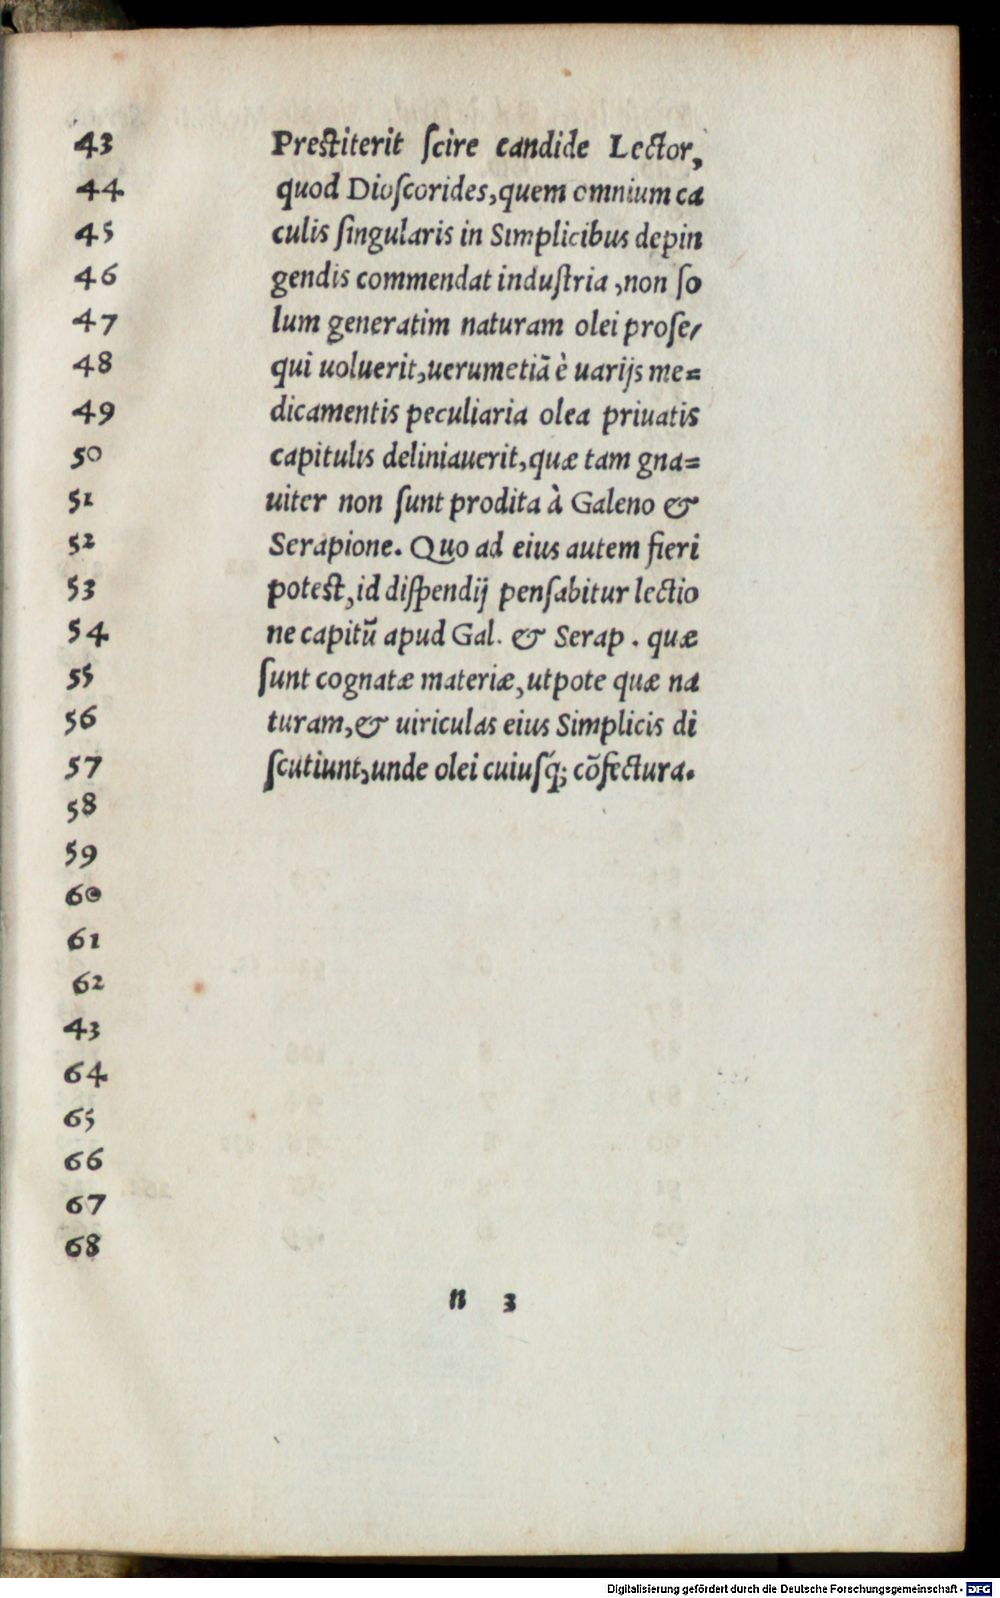 43 Prestiterit ſcire candide Lector,
44 quod Dioſcorides,quem omnium ca
45 culis ſingularis in Simplicibus depin
46 gendis commendat induſtria ,non ſo
47 lum generatim naturam olei proſe/
48 qui uoluerit,uerumetiã è uarijs me=
49 dicamentis peculiaria olea priuatis
50 capitulis deliniauerit,quæ tam gna=
51 uiter non ſunt prodita à Galeno &
52 Serapione. Quo ad eius autem fieri
53 potest,id diſpendij penſabitur lectio
54 ne capitũ apud Gal. & Serap . quæ
55 ſunt cognatæ materiæ,utpote quæ na
56 turam,& uiriculas eius Simplicis di
57 ſcutiunt,unde olei cuiuſq́; cõfectura.
58
59
60
61
62
43
64
65
66
67
68
n 3
Digitalisierung gefördert durch die Deutsche Forschungsgemeinschaft - DFG